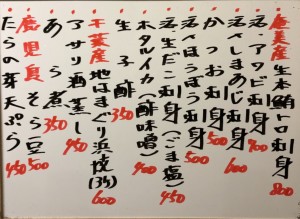 奄美産生本鮪トロ刺身 800
活〆アワビ刺身 900
活〆しまあじ刺身 600
かつお刺身 500
活〆ほうぼう刺身 600
活〆生だこ刺身(ごま塩) 450
ホタルイカ(酢味噌) 400
生子酢 350
千葉産地はまぐり浜焼(3ヶ) 600
アサリ酒蒸し 450
あら煮 350
鹿児島そら豆 500
たらの芽天ぷら 450